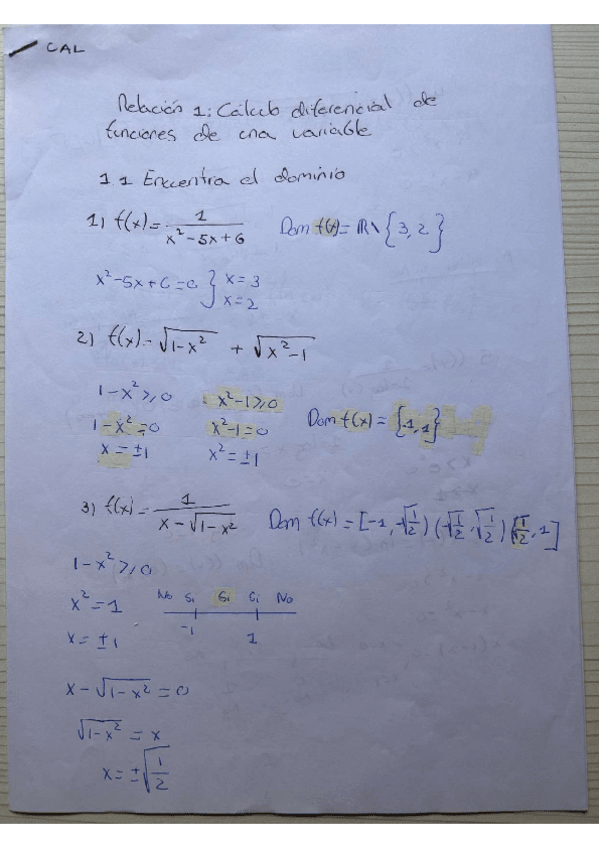 CAL
Relación 1: Cálculo diferencial de
funciones de una variable
1.1 Encuentra el dominio
1) f(x) = 1 / (x² - 5x + 6)   Dom f(x) = ℝ \ {3, 2}
x² - 5x + 6 = 0 } x = 3
x = 2
2) f(x) = √(1-x²) + √(x²-1)
1 - x² ≥ 0   x² - 1 ≥ 0
1 - x² = 0   x² - 1 = 0   Dom f(x) = {1, 1}
x = ±1   x² = ±1
3) f(x) = 1 / (x - √(1-x²))   Dom f(x) = [-1, -√(1/2)) (-√(1/2), √(1/2)) (√(1/2), 1]
1 - x² ≥ 0
x² = 1   No Si Si Si No
x = ±1   -1   1
x - √(1-x²) = 0
√(1-x²) = x
x = ±√(1/2)